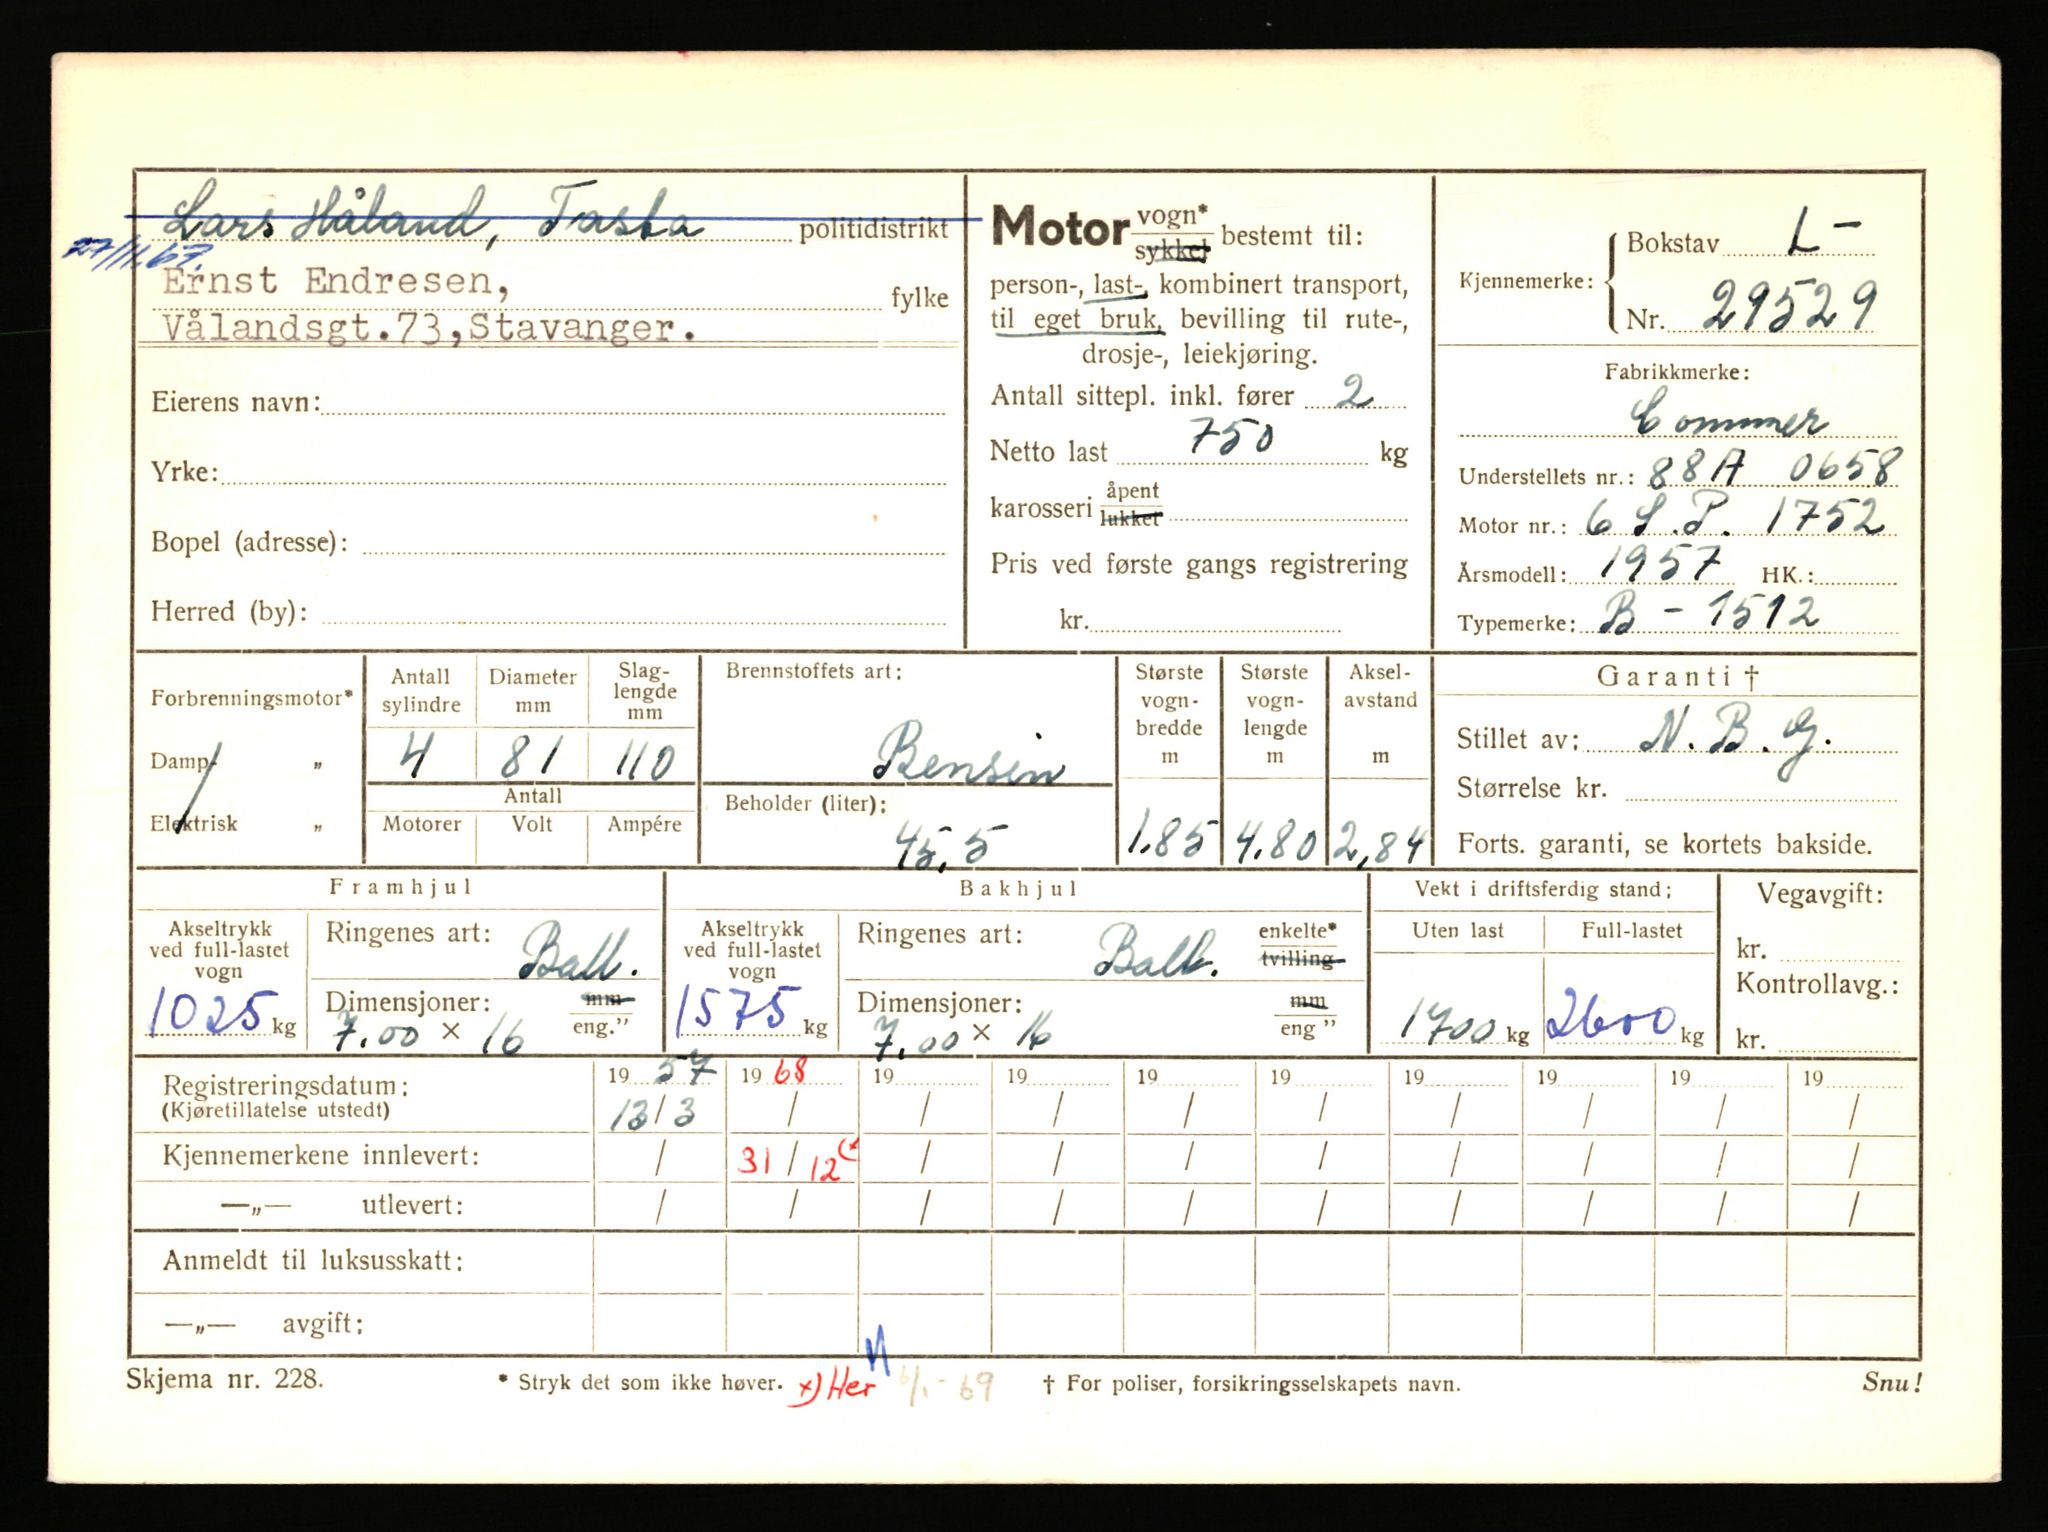 Lars Håland, Tasta politidistrikt
27/11.67.
Ernst Endresen,
fylke
Vålandsgt.73,Stavanger.
Eierens navn:
Yrke:
Bopel (adresse):
Herred (by):
Motor vogn* sykkel bestemt til:
person-, last-, kombinert transport,
til eget bruk, bevilling til rute-,
drosje-, leiekjøring.
Antall sittepl. inkl. fører 2
Netto last 750 kg
karosseri åpent lukket
Pris ved første gangs registrering
kr.
Kjennemerke: Bokstav L-
Nr. 29529
Fabrikkmerke:
Commer
Understellets nr.: 88A 0658
Motor nr.: 6 S.P. 1752
Årsmodell: 1957 HK.:
Typemerke: B - 1512
Forbrenningsmotor*
Damp- „
Elektrisk „
Antall sylindre
Diameter mm
Slag-lengde mm
4 81 110
Antall
Motorer Volt Ampére
Brennstoffets art:
Bensin
Beholder (liter):
45,5
Største vogn-bredde m
1.85
Største vogn-lengde m
4.80
Aksel-avstand m
2,84
Garanti †
Stillet av: N. B. G.
Størrelse kr.
Forts. garanti, se kortets bakside.
Framhjul
Akseltrykk ved full-lastet vogn
1025 kg
Ringenes art: Ball.
Dimensjoner: mm eng.”
7.00 × 16
Bakhjul
Akseltrykk ved full-lastet vogn
1575 kg
Ringenes art: Ball. enkelte* tvilling
Dimensjoner: mm eng ”
7.00 × 16
Vekt i driftsferdig stand:
Uten last Full-lastet
1700 kg 2600 kg
Vegavgift:
kr.
Kontrollavg.:
kr.
Registreringsdatum: 19 57 19 68 19 19 19 19 19 19 19 19
(Kjøretillatelse utstedt) 13/3 / / / / / / / / /
Kjennemerkene innlevert: / 31/12 (x / / / / / / / /
—„— utlevert: / / / / / / / / / /
Anmeldt til luksusskatt:
—„— avgift:
Skjema nr. 228. * Stryk det som ikke høver. x) Her 6/1-69 † For poliser, forsikringsselskapets navn. Snu!